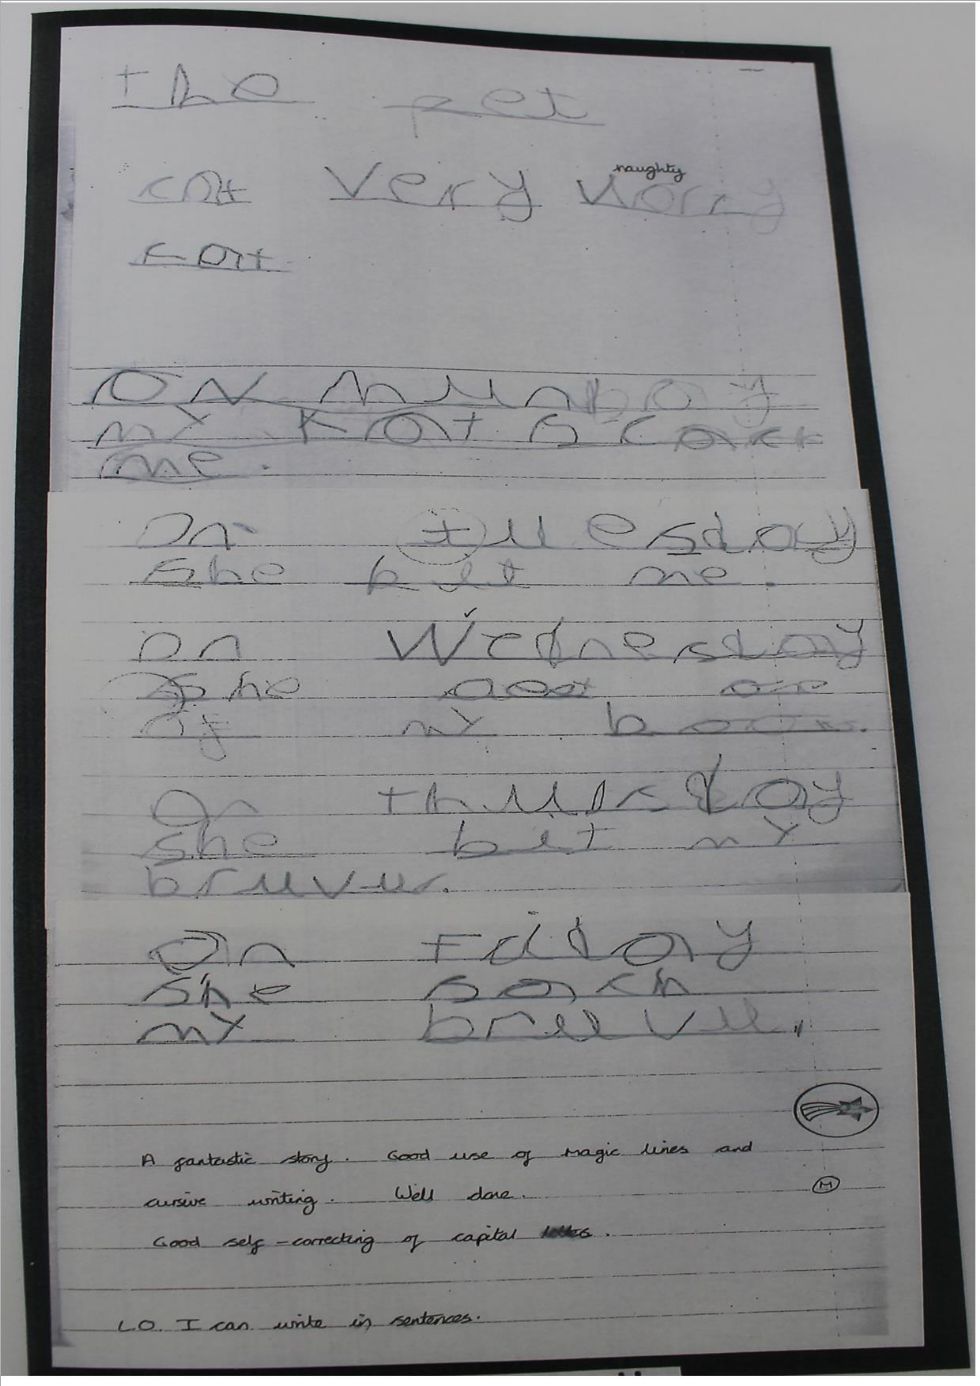 the pet
cat very naughty
cat
ON munday
my kat
me.
On tuesday
she bit me.
On Wednesday
she
of my
On thursday
she bit my
bruvur.
On Friday
she
my bruvu.
A fantastic story. Good use of magic lines and
cursive writing. Well done.
M
Good self-correcting of capital
L.O. I can write in sentences.